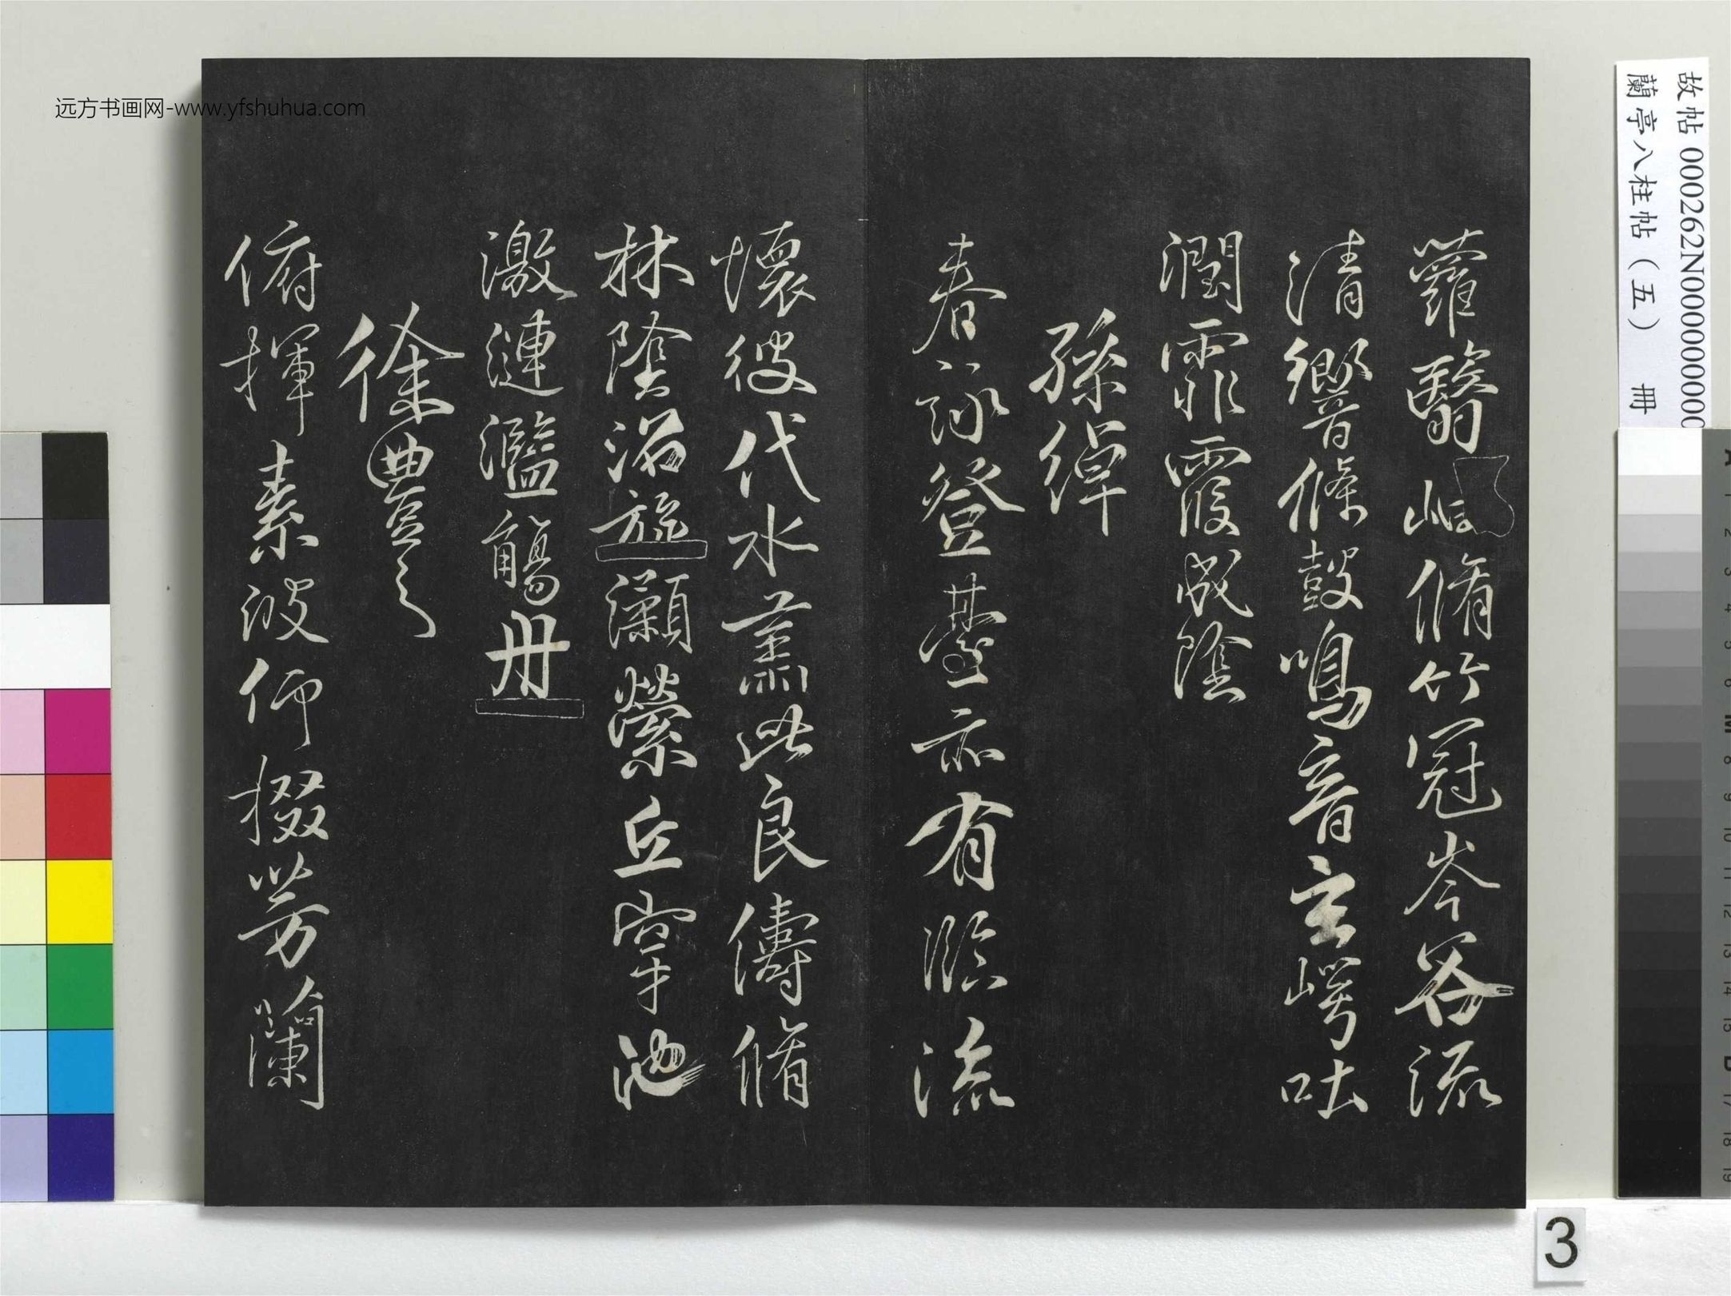 蘿翳岫脩竹冠岑谷流
清響條鼓鳴音玄崿吐
潤霏霞成陰
孫綽
春詠登臺亦有臨流
懷彼代水肅此良儔脩
林陰沼旋瀨縈丘穿池
激漣濫觴舟
徐豐之
俯揮素波仰掇芳蘭
故帖 000262N000000000
蘭亭八柱帖（五） 冊
远方书画网-www.yfshuhua.com
3